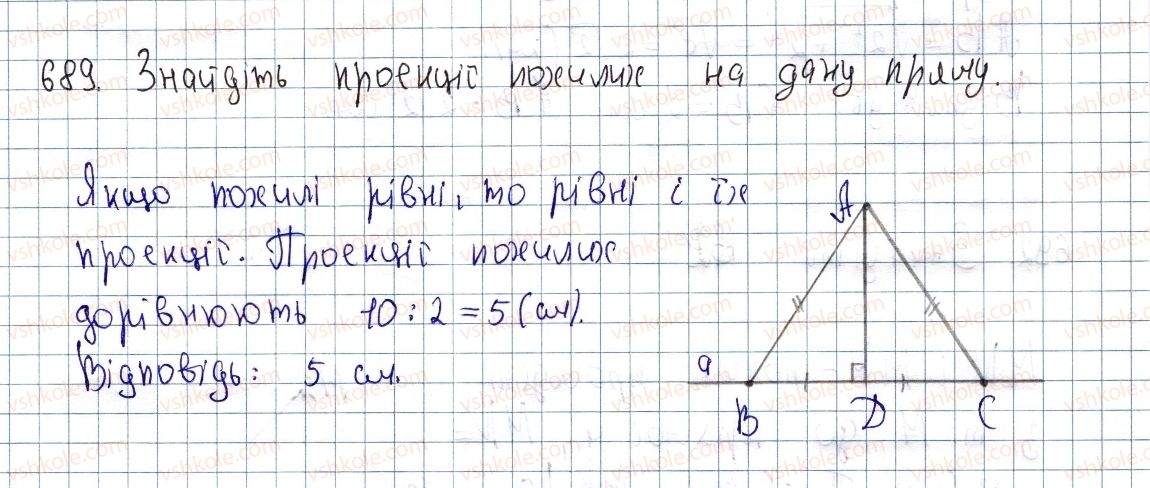 689. Знайдіть проекції похилих на дану пряму.
Якщо похилі рівні, то рівні і їх
проекції. Проекції похилих
дорівнюють 10 : 2 = 5 (см).
Відповідь: 5 см.
A
a
B D C